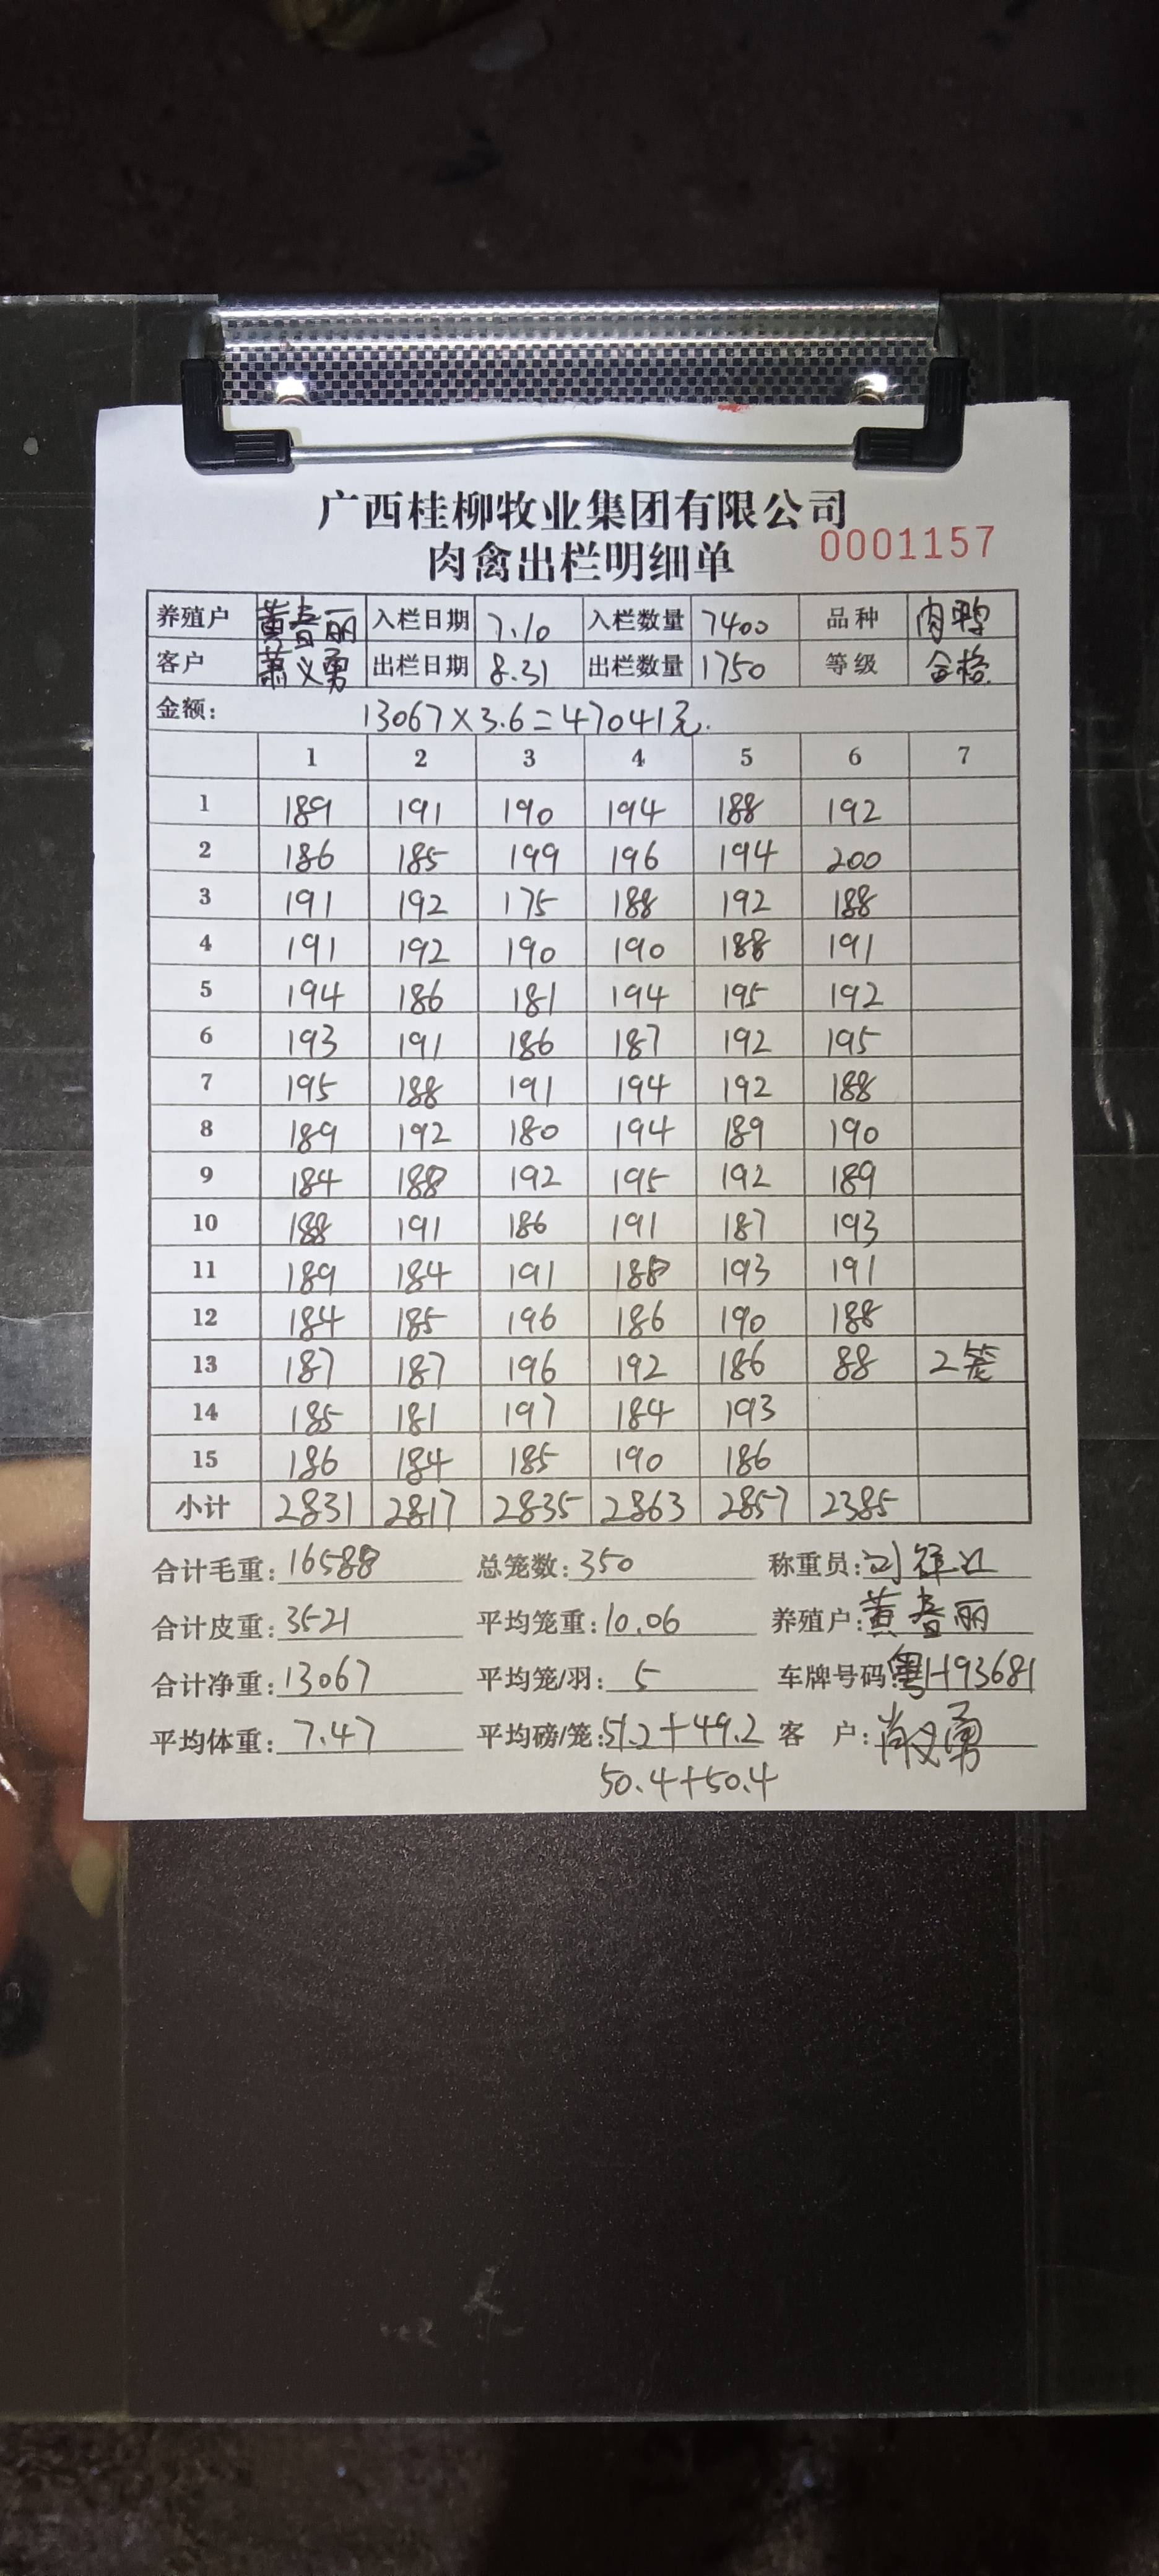 广西桂柳牧业集团有限公司
肉禽出栏明细单 0001157
养殖户 黄春丽 入栏日期 7.10 入栏数量 7400 品种 肉鸭
客户 萧义勇 出栏日期 8.31 出栏数量 1750 等级 合格
金额: 13067×3.6=47041元.
1 2 3 4 5 6 7
1 189 191 190 194 188 192
2 186 185 199 196 194 200
3 191 192 175 188 192 188
4 191 192 190 190 188 191
5 194 186 181 194 195 192
6 193 191 186 187 192 195
7 195 188 191 194 192 188
8 189 192 180 194 189 190
9 184 188 192 195 192 189
10 188 191 186 191 187 193
11 189 184 191 188 193 191
12 184 185 196 186 190 188
13 187 187 196 192 186 88 2笼
14 185 181 197 184 193
15 186 184 185 190 186
小计 2831 2817 2835 2863 2857 2385
合计毛重: 16588 总笼数: 350 称重员:
合计皮重: 3521 平均笼重: 10.06 养殖户: 黄春丽
合计净重: 13067 平均笼/羽: 5 车牌号码 粤H93681
平均体重: 7.47 平均磅/笼: 51.2+49.2 客 户: 肖义勇
50.4+50.4